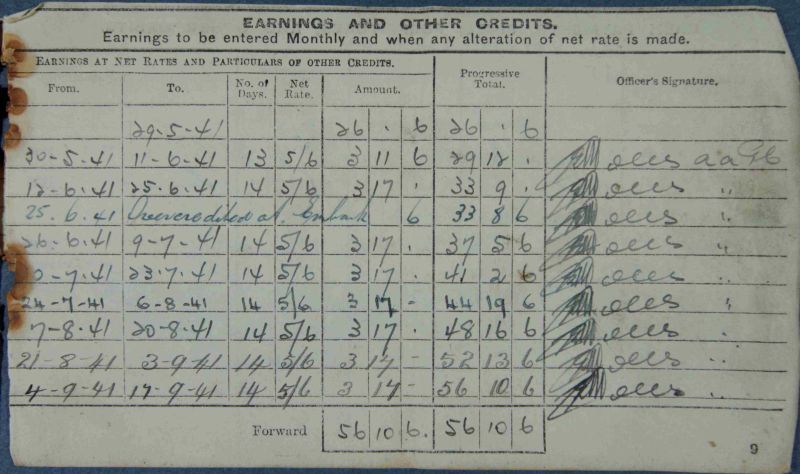 EARNINGS AND OTHER CREDITS.
Earnings to be entered Monthly and when any alteration of net rate is made.
EARNINGS AT NET RATES AND PARTICULARS OF OTHER CREDITS.
From. To. No. of Days. Net Rate. Amount. Progressive Total. Officer's Signature.
29-5-41 26 . 6 26 . 6
30-5-41 11-6-41 13 5/6 3 11 6 29 12 .
12-6-41 25.6.41 14 5/6 3 17 . 33 9 . "
25.6.41 Overcredited at Embark 6 33 8 6 "
26.6.41 9-7-41 14 5/6 3 17 . 37 5 6 "
0-7-41 23.7.41 14 5/6 3 17 . 41 2 6 "
24-7-41 6-8-41 14 5/6 3 17 - 44 19 6 "
7-8-41 20-8-41 14 5/6 3 17 . 48 16 6 "
21-8-41 3-9-41 14 5/6 3 17 - 52 13 6 "
4-9-41 17-9-41 14 5/6 3 17 - 56 10 6 "
Forward 56 10 6. 56 10 6
9